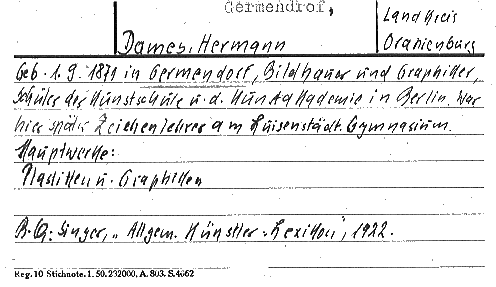 Germendrof,
Landkreis
Dames, Hermann
Oranienburg
Geb. 1.9.1871 in Germendorf, Bildhauer und Graphiker,
Schüler der Kunstschule u. d. KunstAkademie in Berlin. War
hier später Zeichenlehrer am Luisenstädt. Gymnasium.
Hauptwerke:
Plastiken u. Graphiken
B. Q: Singer, „Allgem. Künstler-Lexikon", 1922.
Reg. 10 Stichnote. 1. 50. 232000, A. 803. S. 4662